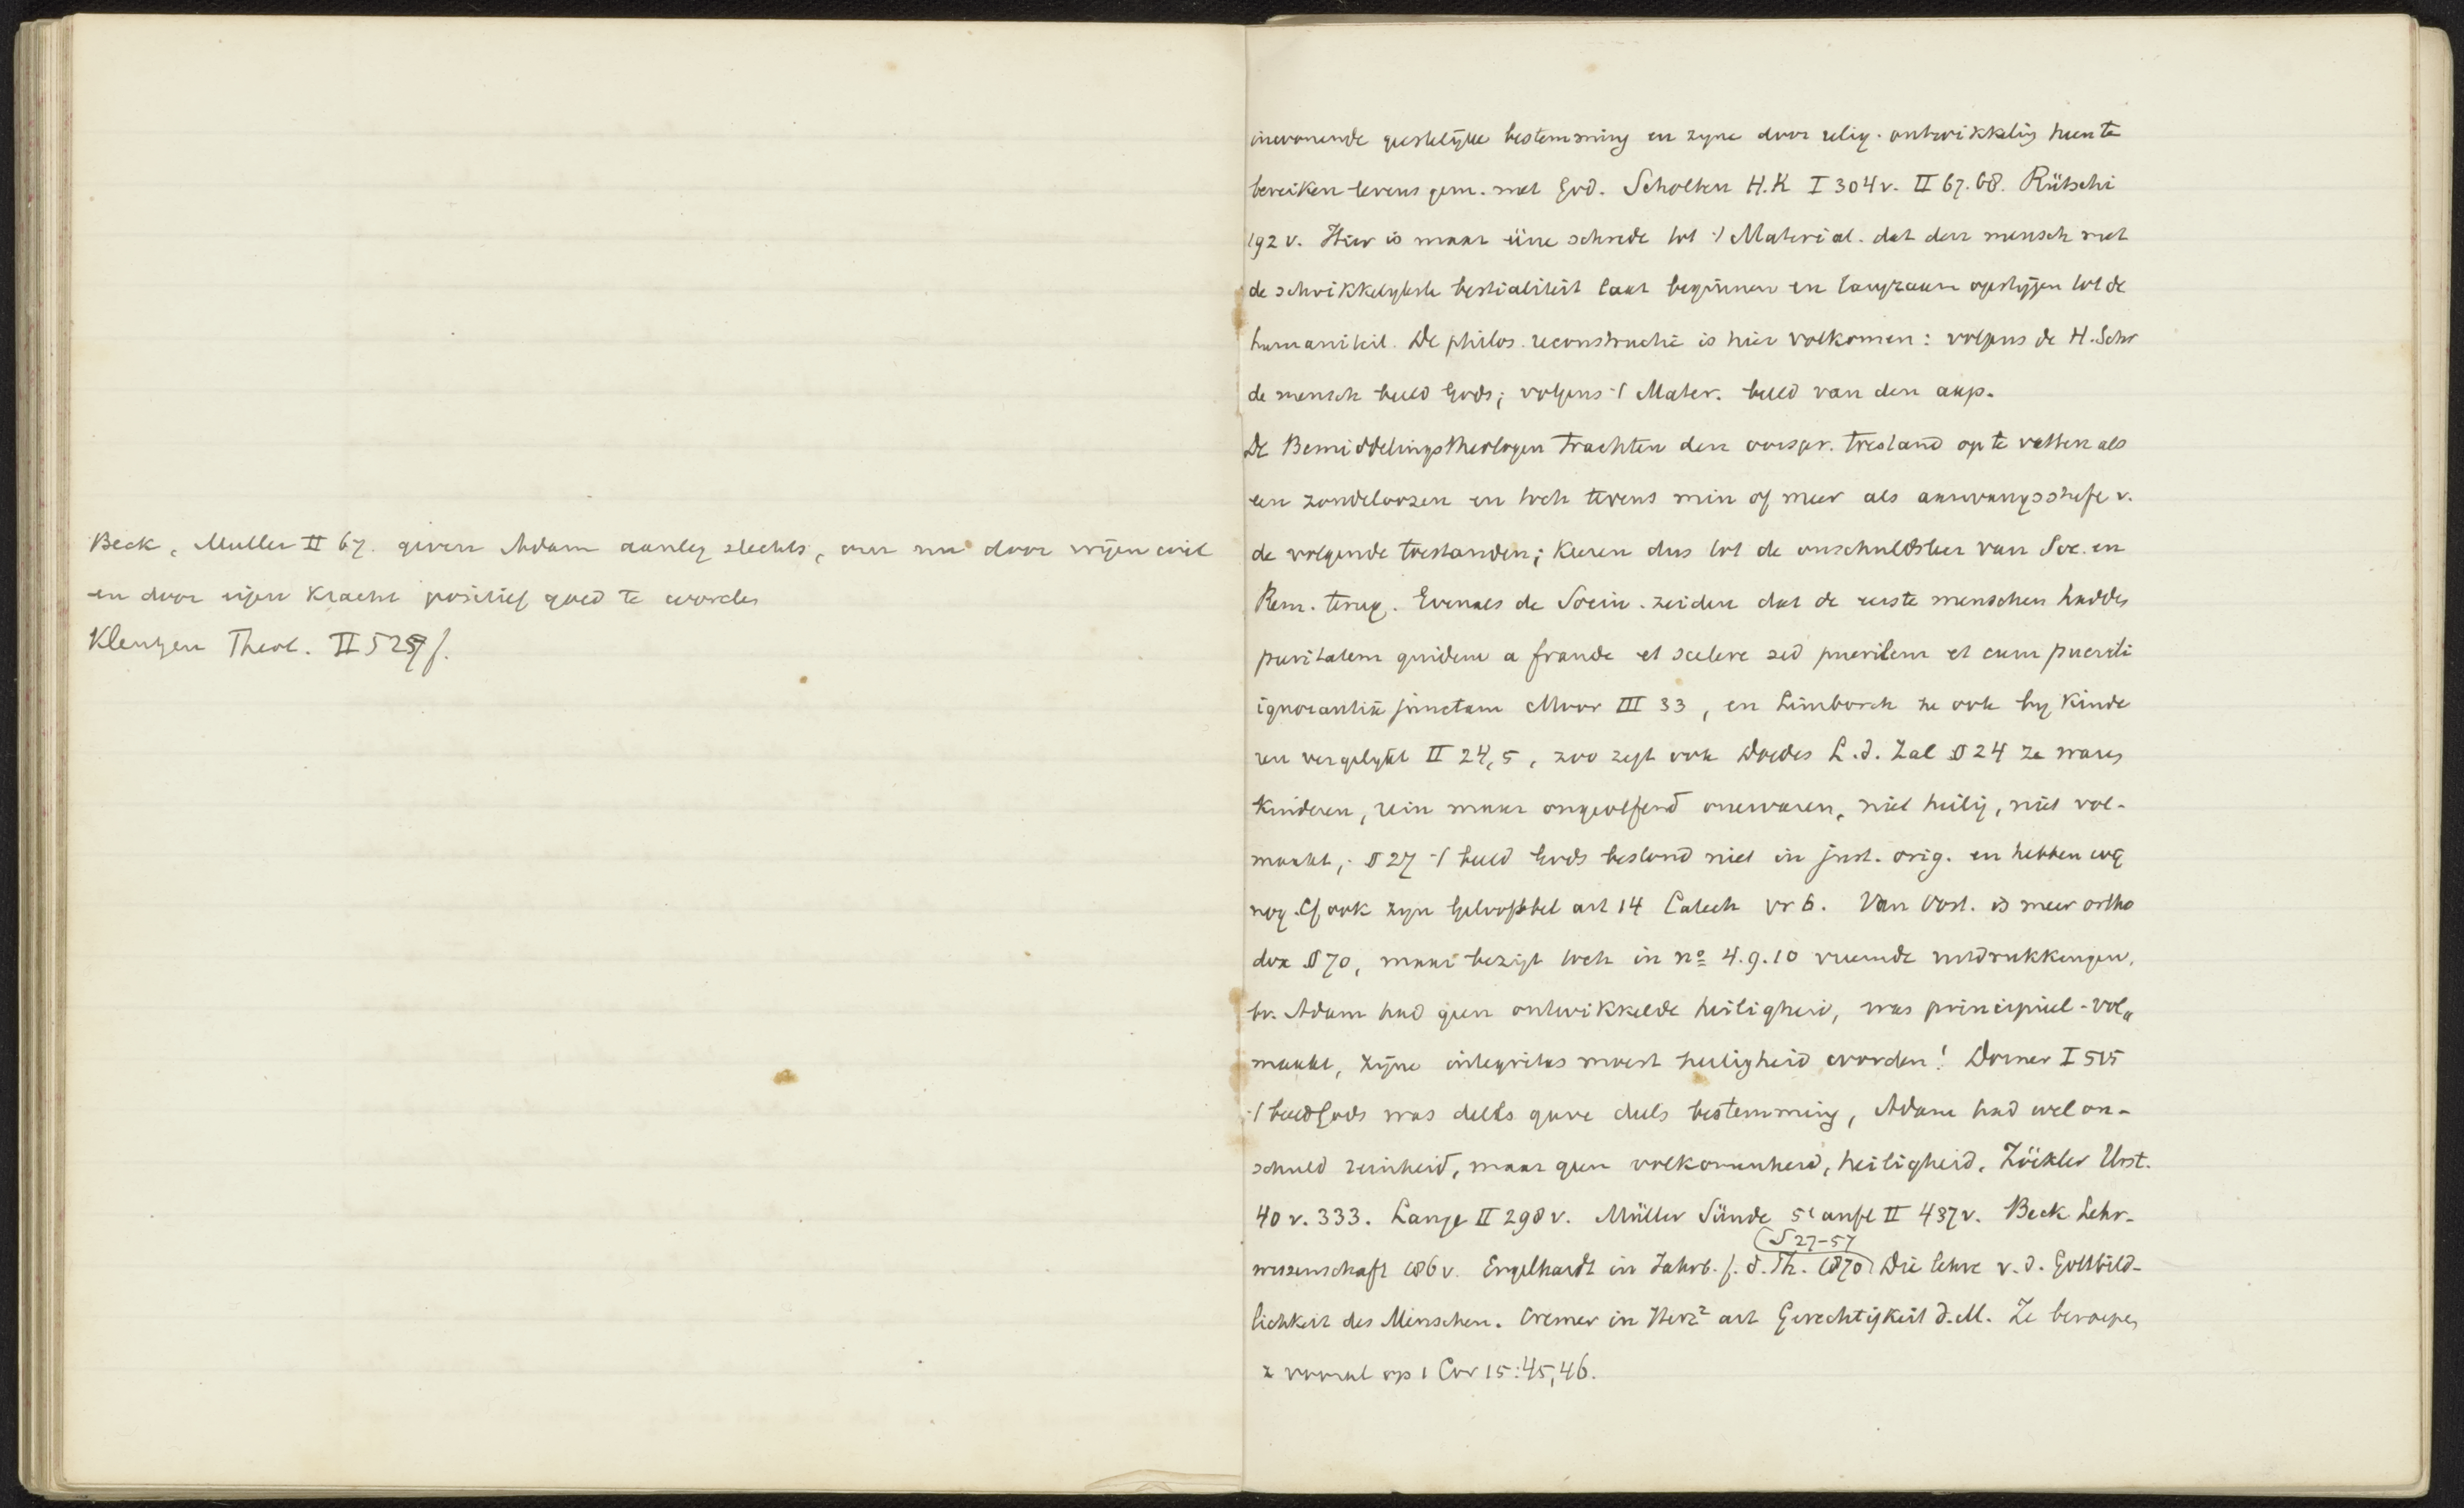 Beck, Muller II 67. geven Adam aanleg slechts, om nu door vrijen wil
en door eigen kracht positief goed te worden
Kleutgen Theol. II 527 f.
inwonende geestelijke bestemming en zyne door relig. ontwikkeling heen te
bereiken levens gem. met God. Scholten H.K I 304 v. II 67.68. Rütschi
192 v. Hier is maar ééne schrede tot 't Material. dat den mensch met
de schrikkelykste bestialiteit laat beginnen en langzaam opstijgen tot de
humaniteit. De philos. reconstructie is hier volkomen: volgens de H. Schr
de mensch beeld Gods; volgens 't Mater. beeld van den aap.
De Bemiddelingstheologen trachten den oorspr. toestand op te vatten als
een zondeloozen en toch tevens min of meer als aanvangsstufe v.
de volgende toestanden; keeren dus tot de onschuldsleer van Soc. en
Rem. terug. Evenals de Socin. zeiden dat de eerste menschen hadden
puritatem quidem a fraude et scelere sed puerilem et cum puerili
ignorantia junctam Moor III 33, en Limborch ze ook by kinde
ren vergelykt II 24,5, zoo zegt ook Doedes L.d. Zal § 24 ze waren
kinderen, rein maar ongeoefend onervaren, niet heilig, niet vol-
maakt; § 27 't beeld Gods bestond niet in just. orig. en hebben wij
nog. Cf ook zyn Geloofsbel art 14 Catech vr 6. Van Oost. is meer ortho
dox § 70, maar bezigt toch in no 4.9.10 vreemde uitdrukkingen,
bv. Adam had geen ontwikkelde heiligheid, was principieel-vol„
maakt, zijne integritas moest heiligheid worden! Dorner I 515
't beeld Gods was deels gave deels bestemming, Adam had wel on-
schuld reinheid, maar geen volkomenheid, heiligheid. Zöckler Urst.
40 v. 333. Lange II 298 v. Müller Sünde 5e aufl II 437 v. Beck Lehr-
wissenschaft 186 v. Engelhardt in Jahrb. f. d. Th. 1870 (S 27-57 Die lehre v. d. Gottbild-
lichkeit des Menschen. Cremer in Herz2 art Gerechtigkeit d. M. Ze beroepen
z vooral op 1 Cor 15:45,46.